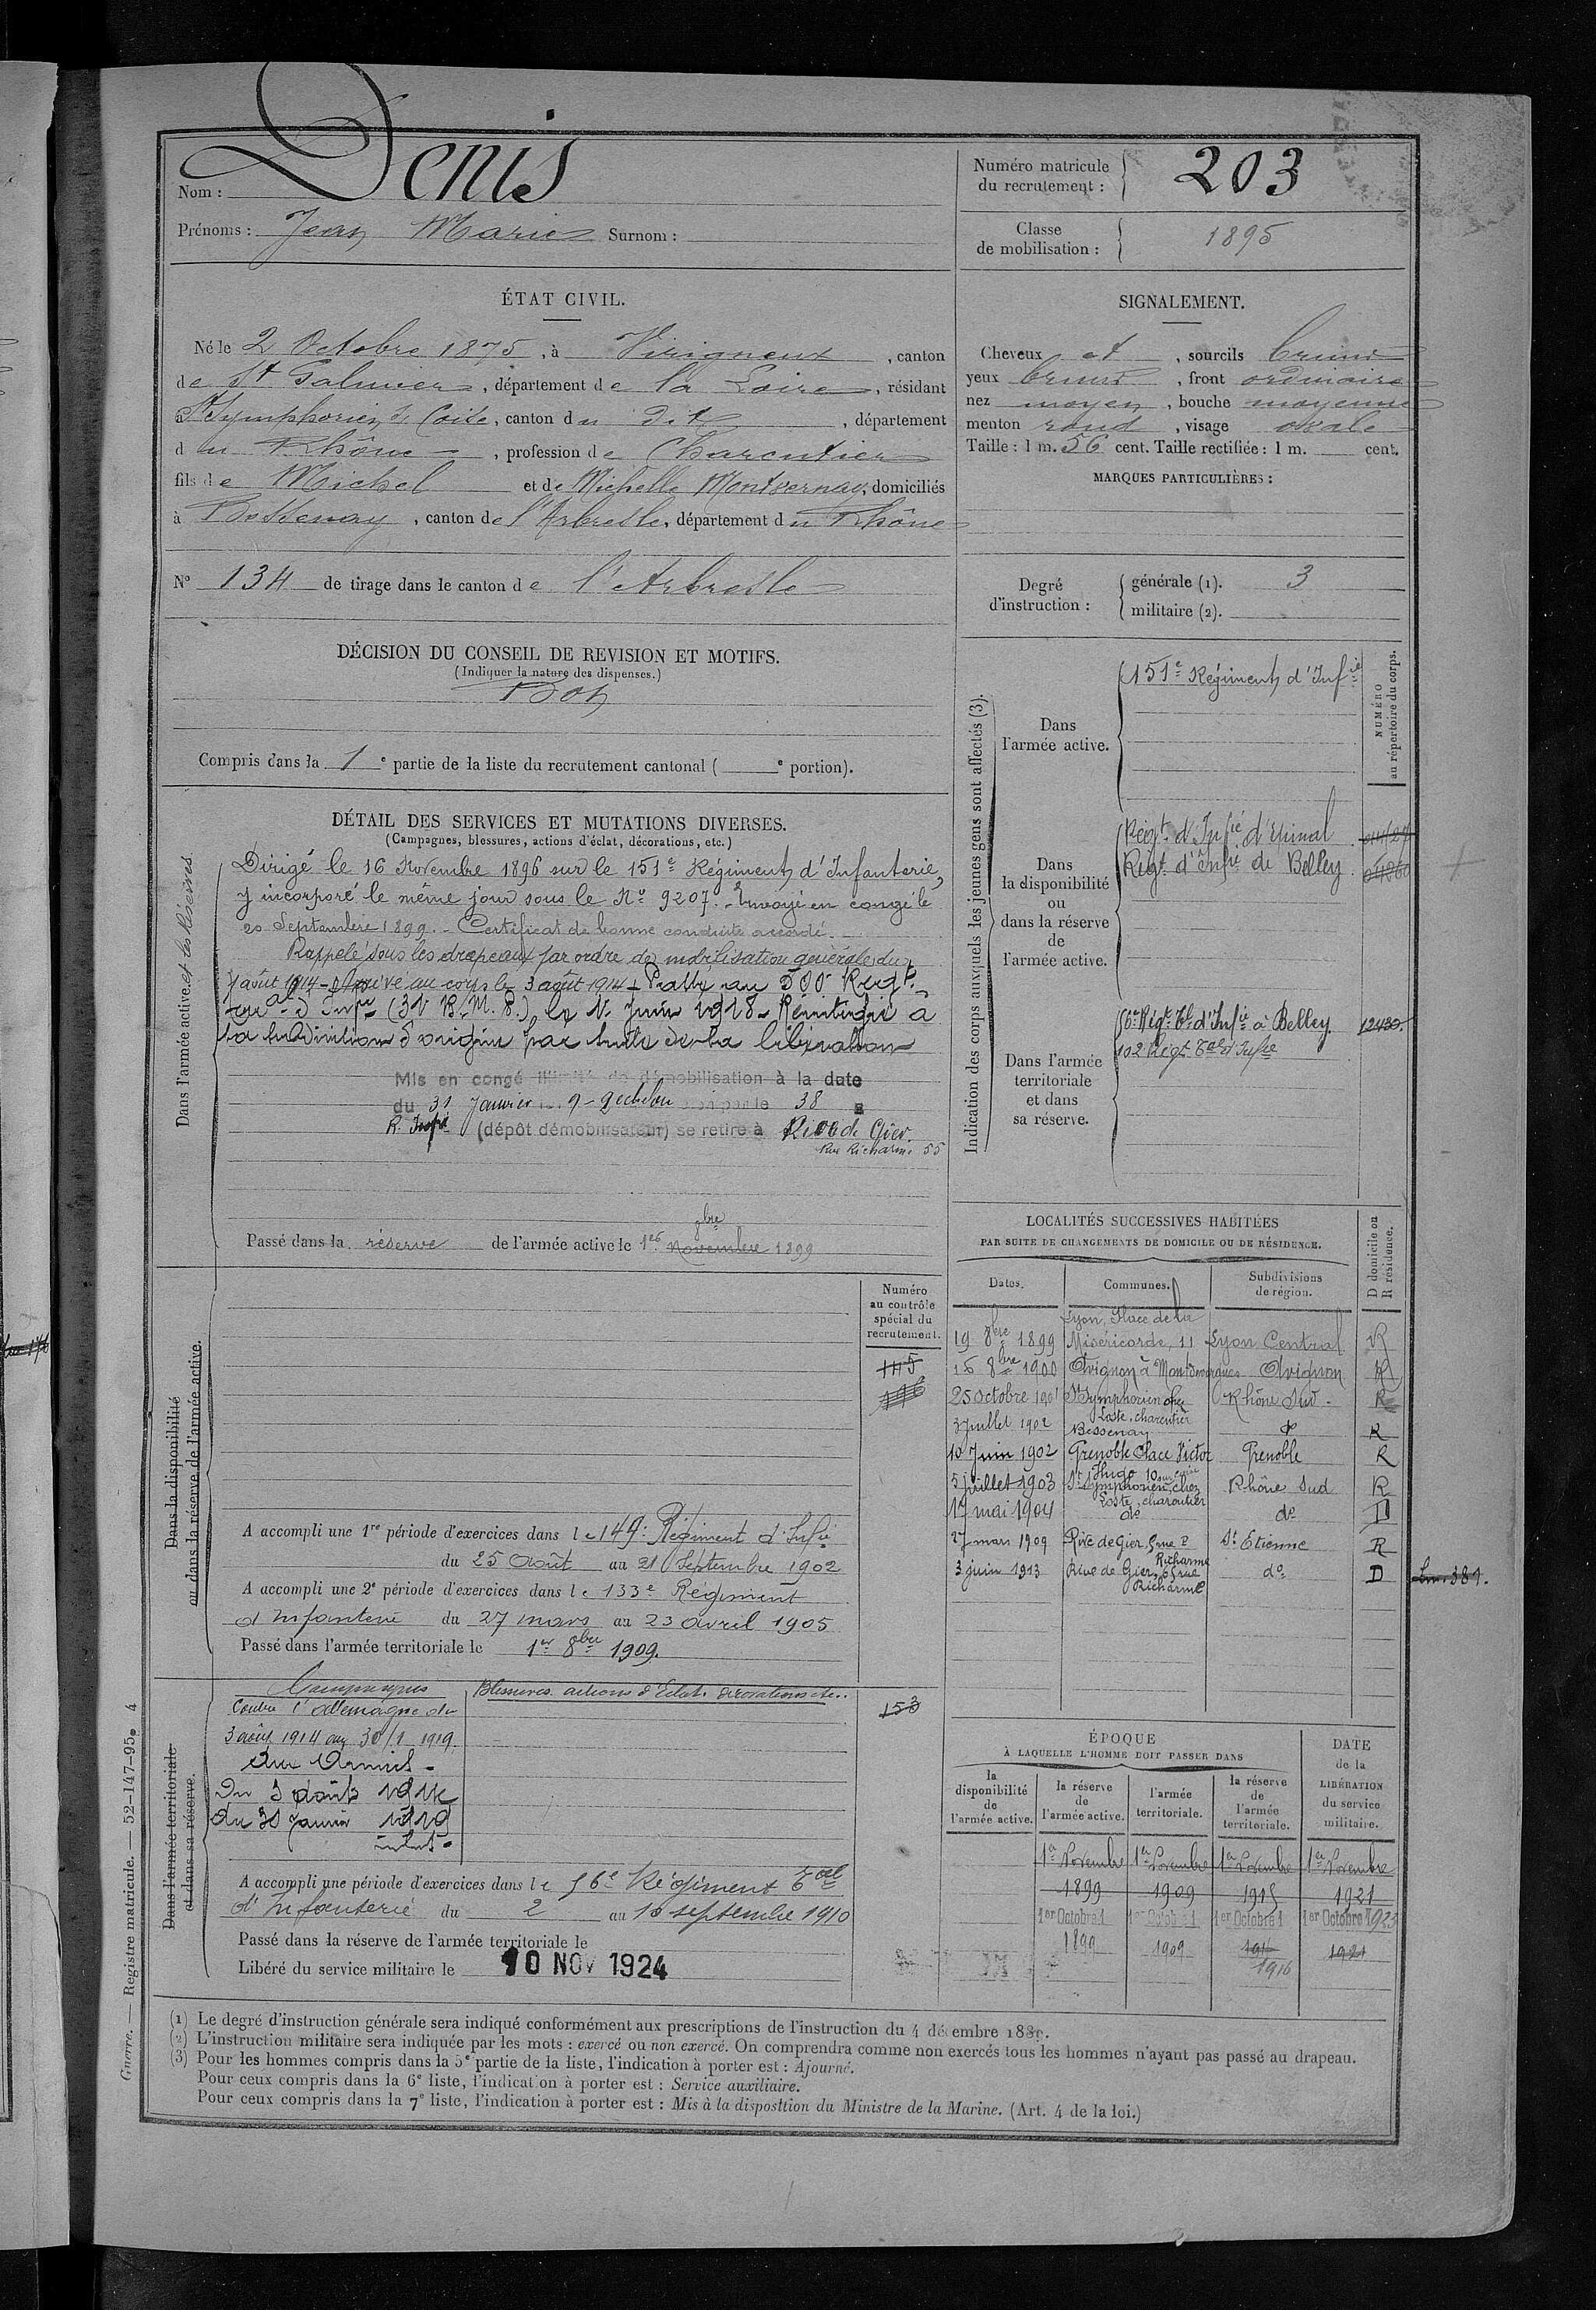 Nom : Denis
Prénoms : Jean Marie Surnom :
Numéro matricule
du recrutement : 203
Classe
de mobilisation : 1895
ÉTAT CIVIL.
Né le 2 Octobre 1875, à Virigneux, canton
de St Galmier, département de la Loire, résidant
St Symphorien s/ Coise, canton du dit, département
du Rhône, profession de Charcutier
fils de Michel et de Michelle Montvernay, domiciliés
à Bessenay, canton de l'Arbresle, département du Rhône
N° 134 de tirage dans le canton de l'Arbresle
SIGNALEMENT.
Cheveux et, sourcils bruns
yeux bruns, front ordinaire
nez moyen, bouche moyenne
menton rond, visage ovale
Taille : 1 m. 56 cent. Taille rectifiée : 1 m. cent.
MARQUES PARTICULIÈRES :
Degré
d'instruction :
générale (1). 3
militaire (2).
DÉCISION DU CONSEIL DE REVISION ET MOTIFS.
(Indiquer la nature des dispenses.)
Bon
Compris dans la 1e partie de la liste du recrutement cantonal ( e portion).
DÉTAIL DES SERVICES ET MUTATIONS DIVERSES.
(Campagnes, blessures, actions d'éclat, décorations, etc.)
Dans l'armée active et les Réserves
Dirigé le 16 Novembre 1896 sur le 151e Régiment d'Infanterie,
y incorporé le même jour sous le N° 9207. Envoyé en congé le
20 Septembre 1899. - Certificat de bonne conduite accordé.
Rappelé sous les drapeaux par ordre de mobilisation générale du
1 août 1914 - Arrivé au corps le 3 août 1914 - Passé au 500 Regt
d'Infie (31 B. M. P.), le 11 Juin 1918 - Réintégré à
la subdivision d'origine par suite de la libération
Mis en congé illimité de démobilisation à la date
du 31 Janvier 9 - 9e échelon par le 38e
R. Infie (dépôt démobilisateur) se retire à Rive de Gier.
Rue Richarme 55
8bre
Passé dans la réserve de l'armée active le 1er Novembre 1899
Indication des corps auxquels les jeunes gens sont affectés (3).
NUMÉRO
au répertoire du corps.
Dans
l'armée active.
151e Régiment d'Infie
Dans
la disponibilité
ou
dans la réserve
de
l'armée active.
Régt d'Infie d'Epinal
Régt d'Infie de Belley
Dans l'armée
territoriale
et dans
sa réserve.
56e Régt Tal d'Infie à Belley 12430.
102 Régt Tal d'Infie
LOCALITÉS SUCCESSIVES HABITÉES
PAR SUITE DE CHANGEMENTS DE DOMICILE OU DE RÉSIDENCE.
D domicile ou
R résidence.
Dates. Communes. Subdivisions
de région.
Lyon, Place de la
19 8bre 1899 Miséricorde, 11 Lyon Central R
16 8bre 1900 Avignon à Montdevergues Avignon R
25 octobre 1901 St Symphorien chez Rhône Sud. R
Coste, charcutier
3 Juillet 1902 Bessenay do R
10 Juin 1902 Grenoble Place Victor Grenoble R
Hugo 10
5 juillet 1903 St Symphorien sur Coise chez Rhône Sud R
Coste, charcutier
17 mai 1904 do do D
27 mars 1909 Rive de Gier, 5 rue St Etienne R
Richarme
3 juin 1913 Rive de Gier, 5 rue do D
Richarme
381.
Dans la disponibilité
ou dans la réserve de l'armée active.
Numéro
au contrôle
spécial du
recrutement.
A accompli une 1re période d'exercices dans le 149e Régiment d'Infie
du 25 Août au 21 Septembre 1902
A accompli une 2e période d'exercices dans le 133e Régiment
d'Infanterie du 27 mars au 23 avril 1905
Passé dans l'armée territoriale le 1er 8bre 1909.
Dans l'armée territoriale
et dans sa réserve.
Campagnes Blessures. actions d'Eclat. décorations etc..
Contre l'Allemagne du
3 août 1914 au 30/1 1919.
Aux Armées -
Du 3 août 1914
au 30 Janvier 1919
inclus.
153
A accompli une période d'exercices dans le 56e Régiment Tal
d'Infanterie du 2 au 10 septembre 1910
Passé dans la réserve de l'armée territoriale le
Libéré du service militaire le 10 NOV 1924
ÉPOQUE
À LAQUELLE L'HOMME DOIT PASSER DANS
DATE
de la
LIBÉRATION
du service
militaire.
la
disponibilité
de
l'armée active.
la réserve
de
l'armée active.
l'armée
territoriale.
la réserve
de
l'armée
territoriale.
1er Novembre 1er Novembre 1er Novembre 1er Novembre
1899 1909 1915 1921
1er Octobre 1 1er Octobre 1 1er Octobre 1 1er Octobre 1923
1899 1909 1916 1921
Guerre. — Registre matricule. — 52-147-95. 4
(1) Le degré d'instruction générale sera indiqué conformément aux prescriptions de l'instruction du 4 décembre 1889.
(2) L'instruction militaire sera indiquée par les mots : exercé ou non exercé. On comprendra comme non exercés tous les hommes n'ayant pas passé au drapeau.
(3) Pour les hommes compris dans la 5e partie de la liste, l'indication à porter est : Ajourné.
Pour ceux compris dans la 6e liste, l'indication à porter est : Service auxiliaire.
Pour ceux compris dans la 7e liste, l'indication à porter est : Mis à la disposition du Ministre de la Marine. (Art. 4 de la loi.)